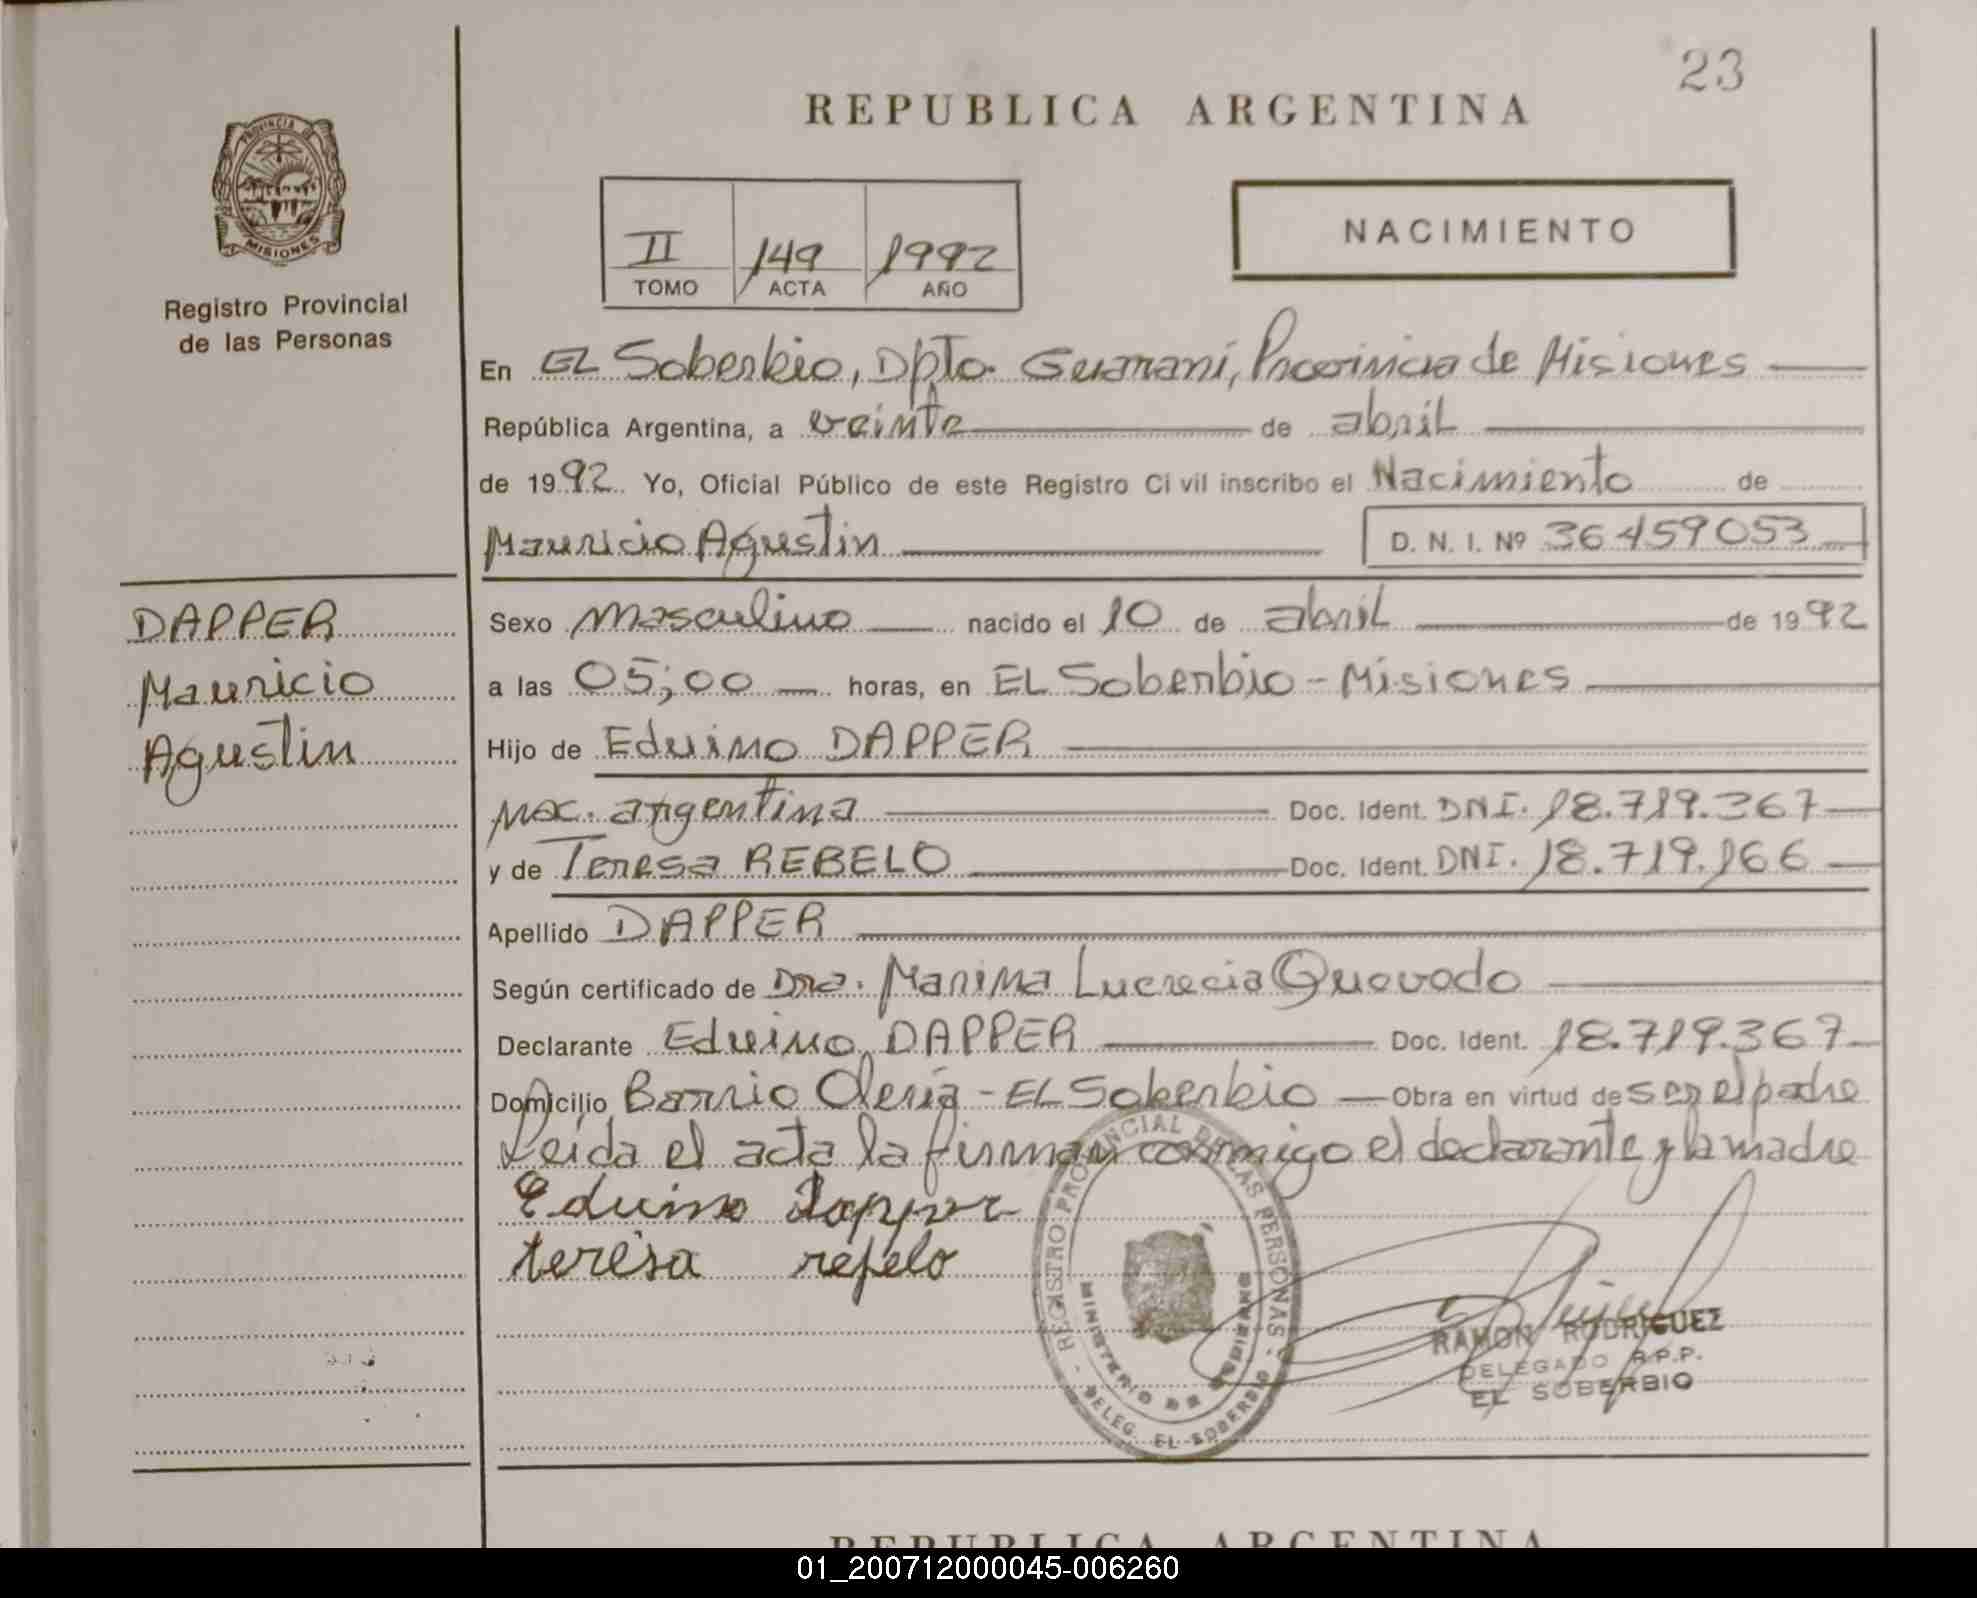 23
REPUBLICA ARGENTINA
PROVINCIA DE
MISIONES
Registro Provincial
de las Personas
II 149 1992
TOMO ACTA AÑO
NACIMIENTO
En EL Soberbio, Dpto. Guaraní, Provincia de Misiones
República Argentina, a veinte de abril
de 1992 Yo, Oficial Público de este Registro Civil inscribo el Nacimiento de
Mauricio Agustin D. N. I. Nº 36459053
DAPPER
Mauricio
Agustin
Sexo Masculino nacido el 10 de abril de 1992
a las 05;00 horas, en EL Soberbio - Misiones
Hijo de Eduino DAPPER
nac. argentina Doc. Ident. DNI. 18.719.367
y de Teresa REBELO Doc. Ident. DNI. 18.719.166
Apellido DAPPER
Según certificado de Dra. Marina Lucrecia Quevedo
Declarante Eduino DAPPER Doc. Ident. 18.719.367
Domicilio Barrio Olería - EL Soberbio Obra en virtud de ser el padre
Leída el acta la firman conmigo el declarante y la madre
Eduino Dapper
teresa repelo
REGISTRO PROVINCIAL DE LAS PERSONAS
MINISTERIO DE GOBIERNO
DELEG. EL SOBERBIO
RAMON RODRIGUEZ
DELEGADO R.P.P.
EL SOBERBIO
REPUBLICA ARGENTINA
01_200712000045-006260